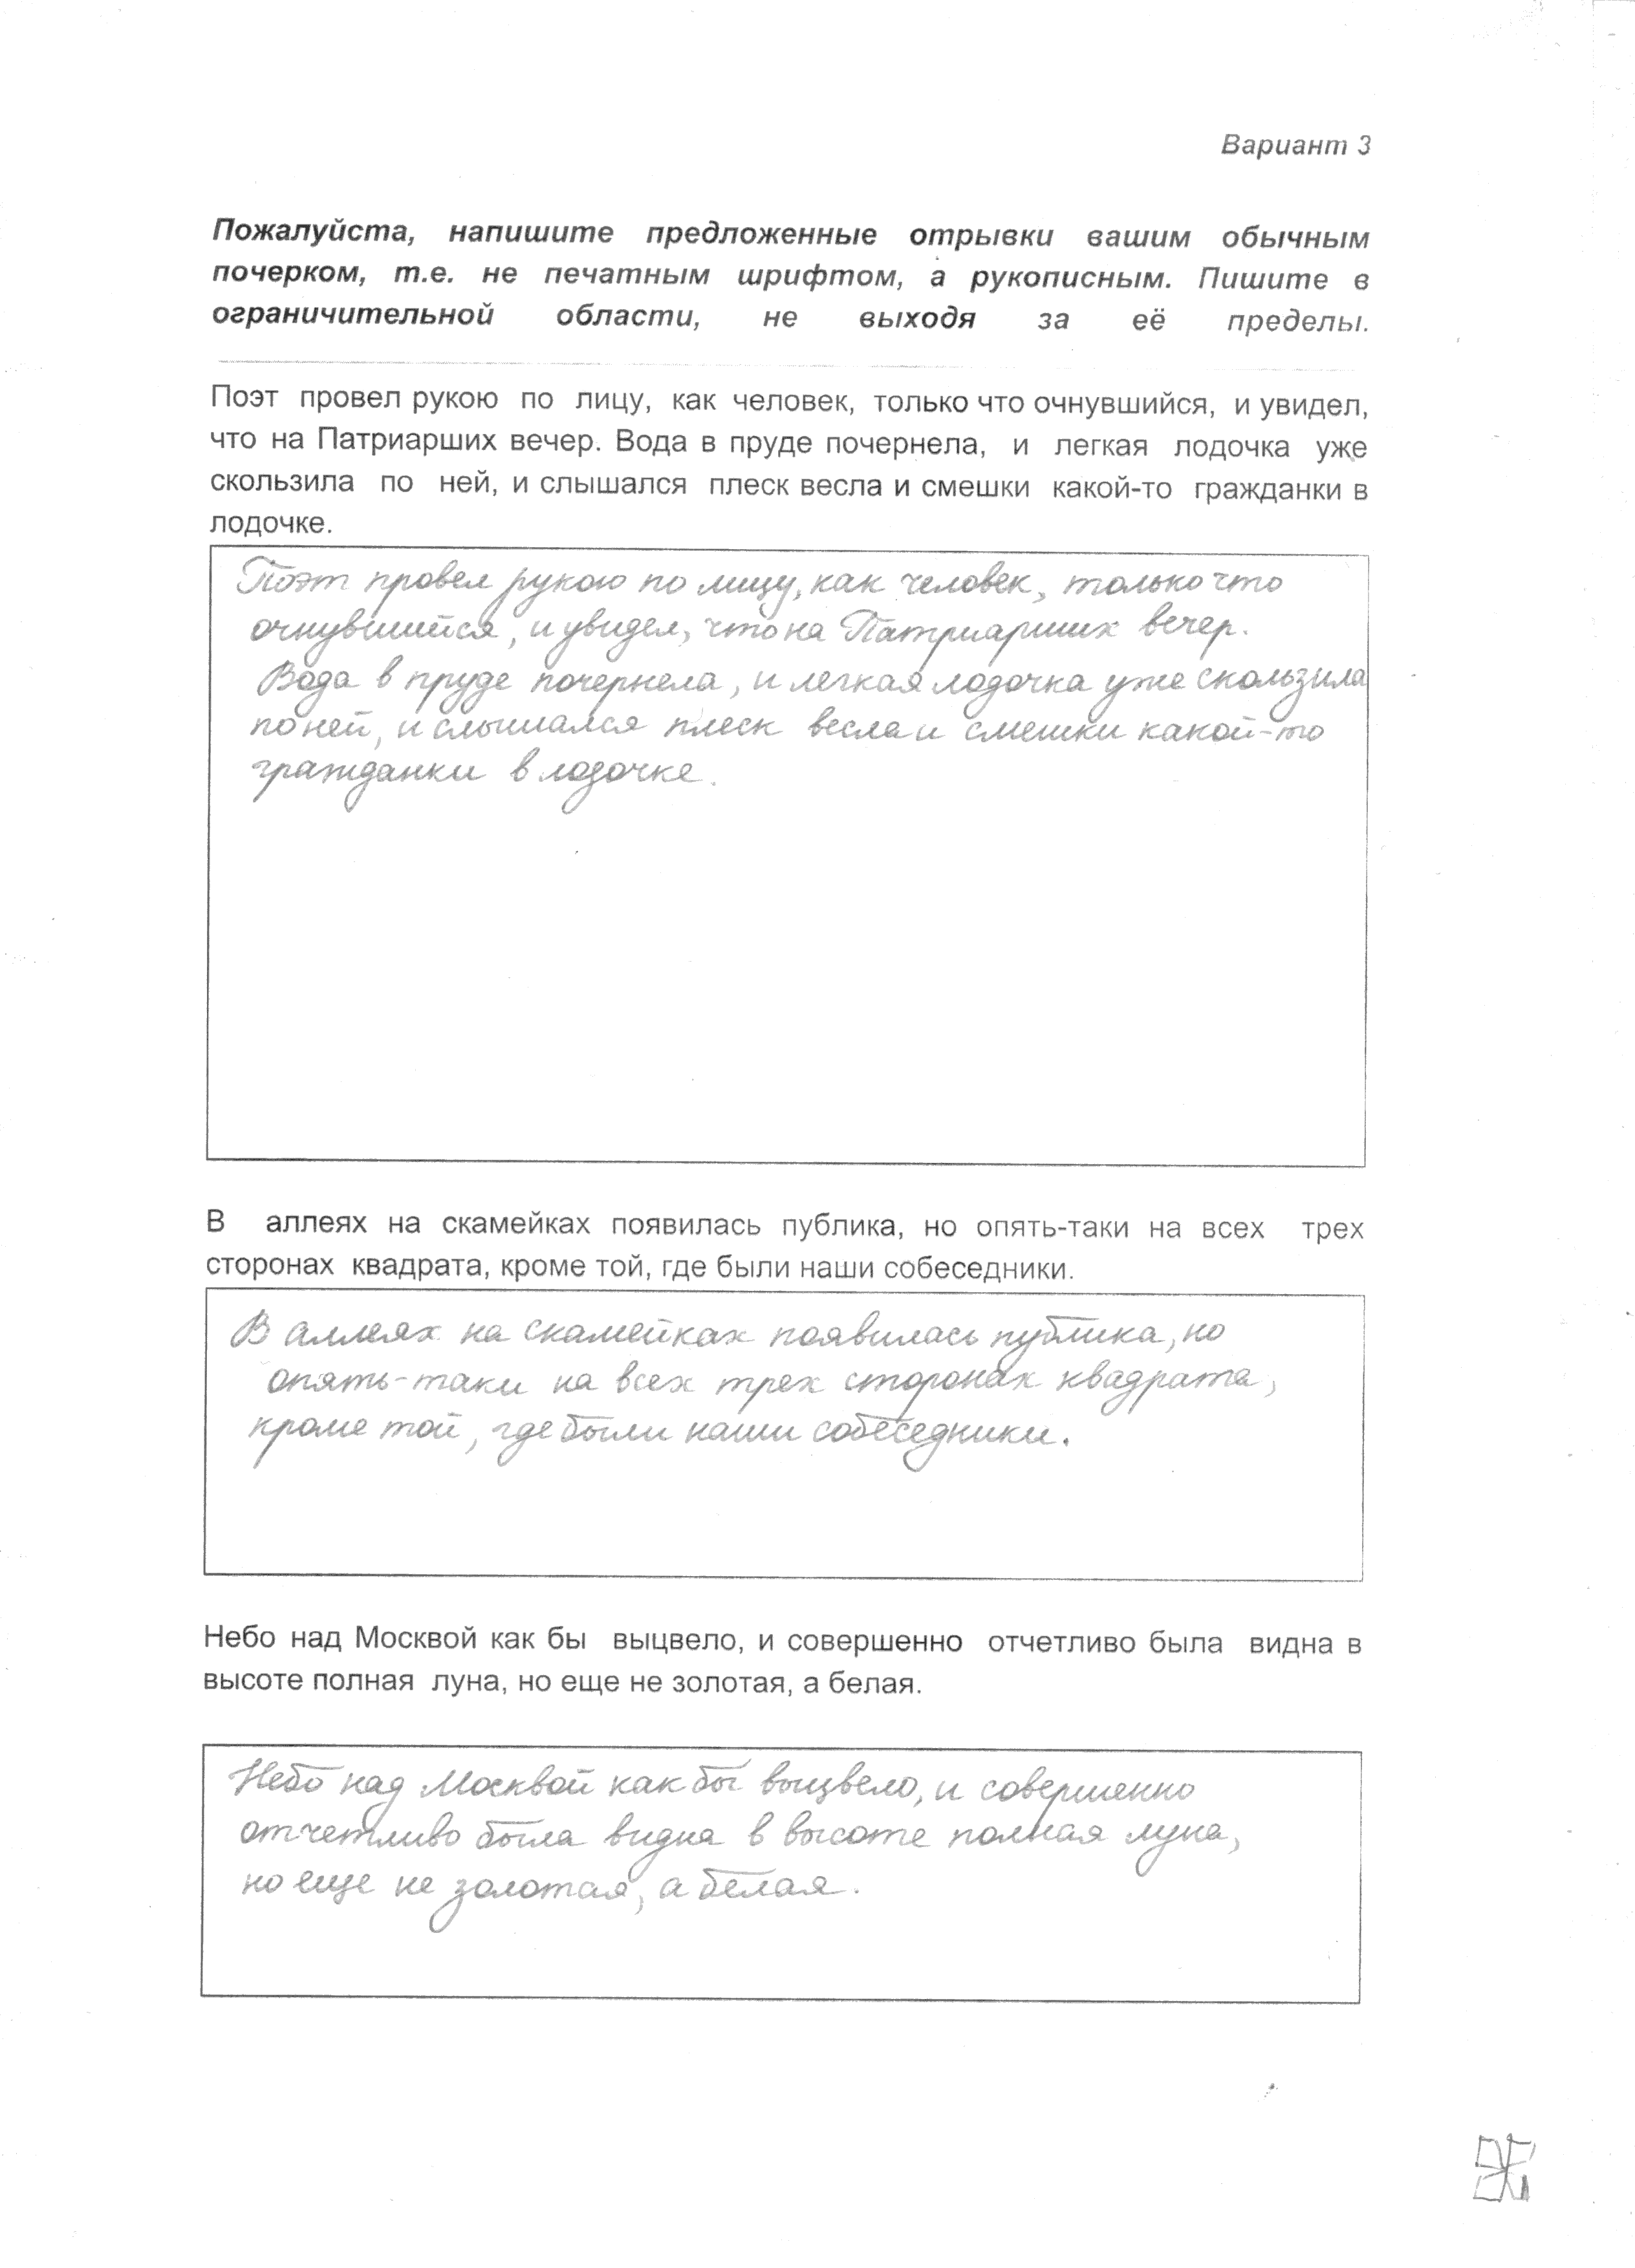 Вариант 3
Пожалуйста, напишите предложенные отрывки вашим обычным
почерком, т.е. не печатным шрифтом, а рукописным. Пишите в
ограничительной области, не выходя за её пределы.
Поэт провел рукою по лицу, как человек, только что очнувшийся, и увидел,
что на Патриарших вечер. Вода в пруде почернела, и легкая лодочка уже
скользила по ней, и слышался плеск весла и смешки какой-то гражданки в
лодочке.
Поэт провел рукою по лицу, как человек, только что
очнувшийся, и увидел, что на Патриарших вечер.
Вода в пруде почернела, и легкая лодочка уже скользила
по ней, и слышался плеск весла и смешки какой-то
гражданки в лодочке.
В аллеях на скамейках появилась публика, но опять-таки на всех трех
сторонах квадрата, кроме той, где были наши собеседники.
В аллеях на скамейках появилась публика, но
опять-таки на всех трех сторонах квадрата,
кроме той, где были наши собеседники.
Небо над Москвой как бы выцвело, и совершенно отчетливо была видна в
высоте полная луна, но еще не золотая, а белая.
Небо над Москвой как бы выцвело, и совершенно
отчетливо была видна в высоте полная луна,
но еще не золотая, а белая.